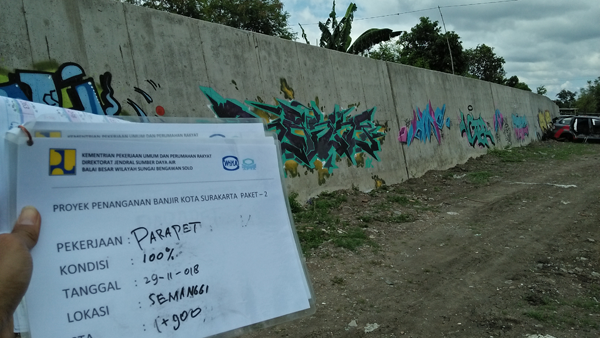 KEMENTERIAN PEKERJAAN UMUM DAN PERUMAHAN RAKYAT
DIREKTORAT JENDRAL SUMBER DAYA AIR
BALAI BESAR WILAYAH SUNGAI BENGAWAN SOLO
PROYEK PENANGANAN BANJIR KOTA SURAKARTA PAKET - 2
PEKERJAAN : PARAPET
KONDISI : 100%
TANGGAL : 29-11-018
LOKASI : SEMANGGI
: 1+900